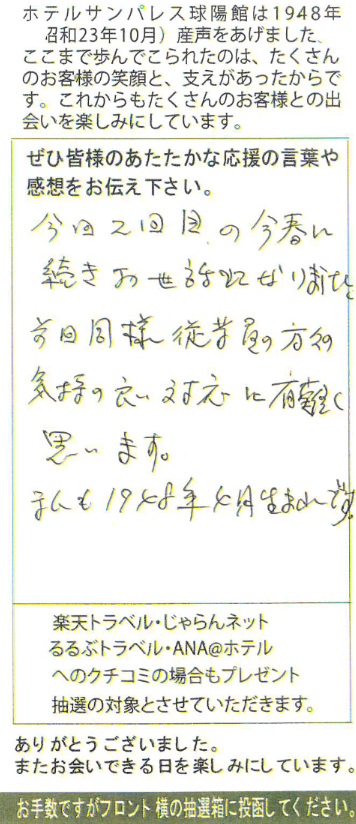 ホテルサンパレス球陽館は1948年
昭和23年10月）産声をあげました
ここまで歩んでこられたのは、たくさん
のお客様の笑顔と、支えがあったからで
す。これからもたくさんのお客様との出
会いを楽しみにしています。
ぜひ皆様のあたたかな応援の言葉や
感想をお伝え下さい。
今回2回目の今春に
続きお世話になりました
前回同様従業員の方の
気持の良い対応に有難く
思います。
1948年4月生まれです。
楽天トラベル・じゃらんネット
るるぶトラベル・ANA@ホテル
へのクチコミの場合もプレゼント
抽選の対象とさせていただきます。
ありがとうございました。
またお会いできる日を楽しみにしています。
お手数ですがフロント横の抽選箱に投函してください。